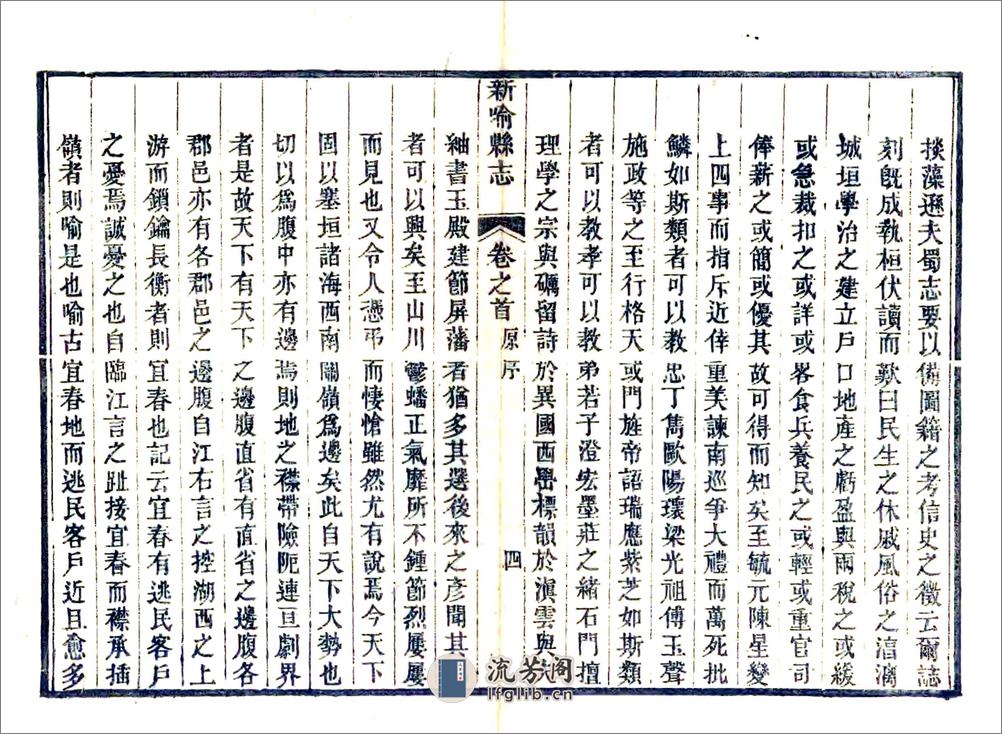 掞藻遜夫蜀志要以備圖籍之考信史之徵云爾誌
刻旣成執桓伏讀而歎曰民生之休戚風俗之淯漓
城垣學治之建立戶口地產之虧盈與雨稅之或緩
或急裁扣之或詳或畧食兵養民之或輕或重官司
俸薪之或簡或優其故可得而知矣至毓元陳星變
上四事而指斥近倖重美諫南巡爭大禮而萬死批
鱗如斯類者可以教忠丁雋歐陽瓌梁光祖傅玉聲
施政等之至行格天或門旌帝語瑞應紫芝如斯類
者可以教孝可以教弟若子澄宏墨莊之緒石門擅
理學之宗與礪留詩於異國西嵒標韻於滇雲與
新喻縣志
卷之首
原序
四
紬書玉殿建節屏藩者猶多其選後來之彥聞其
者可以興矣至山川鬱蟠正氣靡所不鍾節烈屢屢
而見也又令人憑弔而悽愴雖然尤有說焉今天下
固以塞垣諸海西南關嶺爲邊矣此自天下大勢也
切以爲腹中亦有邊焉則地之襟帶險阨連亘劇界
者是故天下有天下之邊腹直省有直省之邊腹各
郡邑亦有各郡邑之邊腹自江右言之控湖西之上
游而鎖鑰長衡者則宜春也記云宜春有逃民客戶
之憂焉誠憂之也自臨江言之趾接宜春而襟承插
嶺者則喻是也喻古宜春地而逃民客戶近且愈多
流芳阁
lfglib.cn